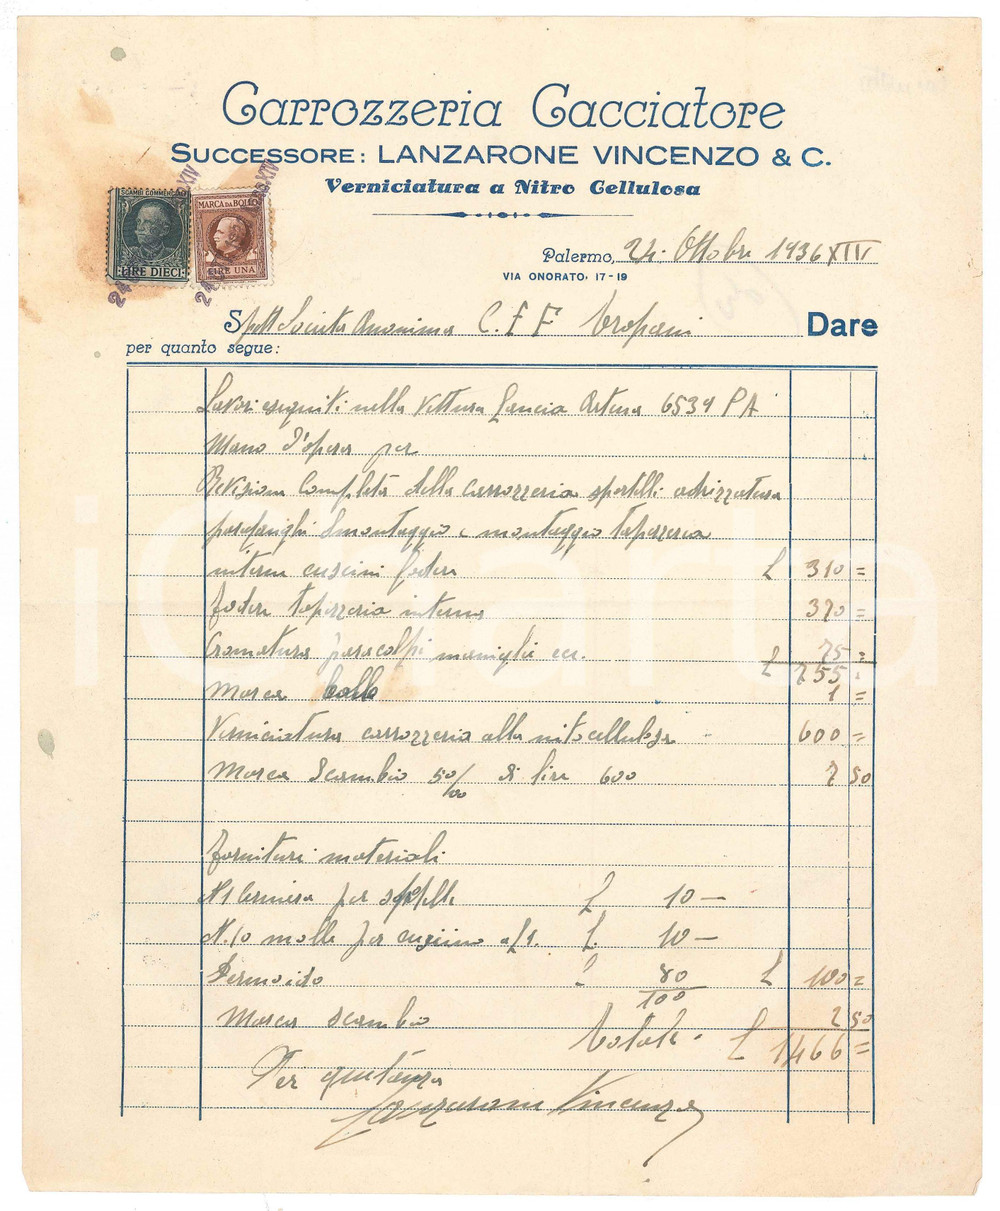 Carrozzeria Cacciatore
SUCCESSORE: LANZARONE VINCENZO & C.
Verniciatura a Nitro Cellulosa
SCAMBI COMMERCIALI
LIRE DIECI
MARCA DA BOLLO
LIRE UNA
Palermo, 24 Ottobre 1936 XIII
VIA ONORATO, 17-19
Spett Società Anonima C. F F Trapani Dare
per quanto segue:
Lavori eseguiti nella Vettura Lancia Artena 6534 PA
Mano d'opera per
Revisione Completa della carrozzeria sportelli adrizzatura
parafanghi smontaggio e montaggio tapezzeria
interna cuscini fodere £ 310 =
Fodere tapezzeria interna 370 =
Cromatura paracolpi maniglie ecc. 75 =
£ 755 .
Marca bollo 1 =
Verniciatura carrozzeria alla nitocellulosa 600 =
Marca Scambio 50/00 di lire 600 7 50
Fornituri materiali
N 1 Cerniera per sportello £ 10 —
N. 10 molle per cuscino a £ 1. £. 10 —
Dermoido " 80
100 £ 100 =
Marca scambio 2 50
Totale £ 1466 =
Per quitanza
Lanzarone Vincenzo
iCharta